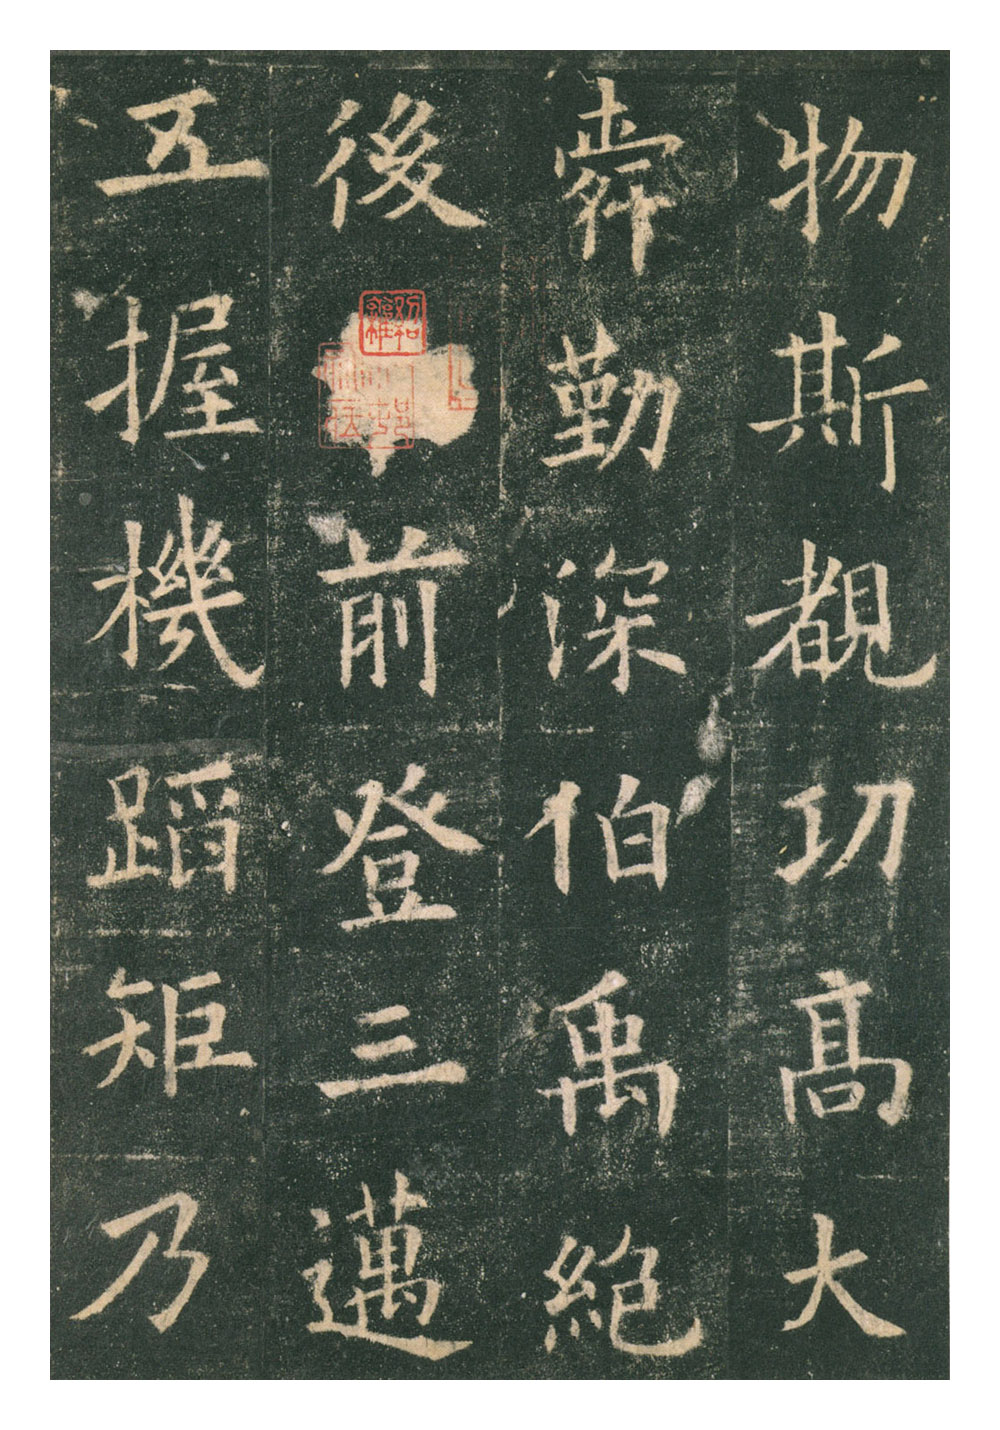 物斯覩功高大
舜勤深伯禹絕
後前登三邁
五握機蹈矩乃